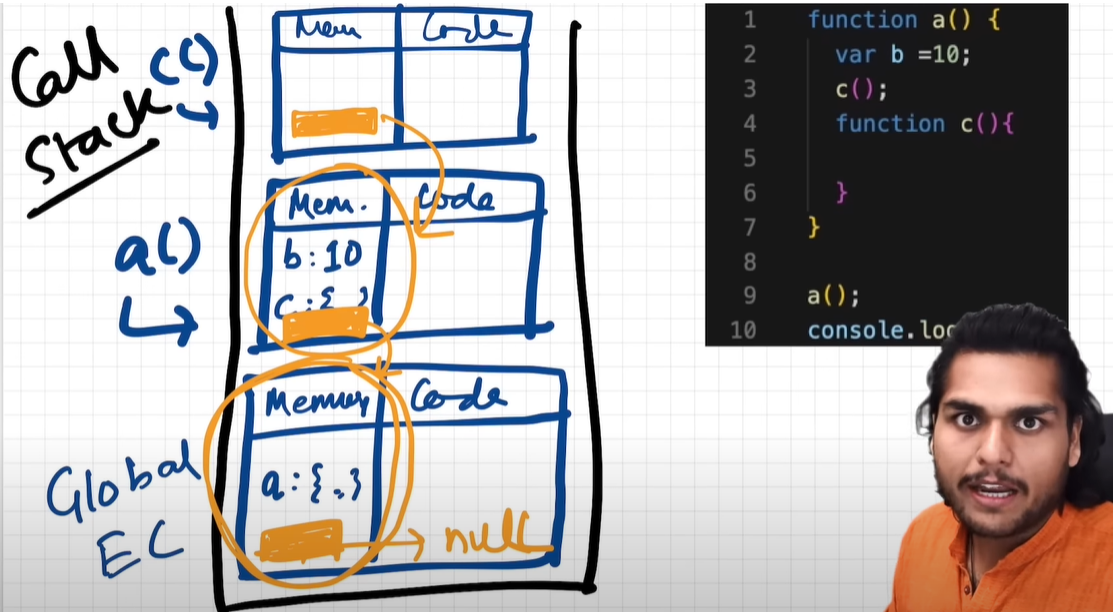 Call
Stack
c()
Mem
Code
a()
Mem.
Code
b:10
c:{ }
Global
EC
Memory
Code
a:{.}
null
1 function a() {
2 var b =10;
3 c();
4 function c(){
5
6 }
7 }
8
9 a();
10 console.lo